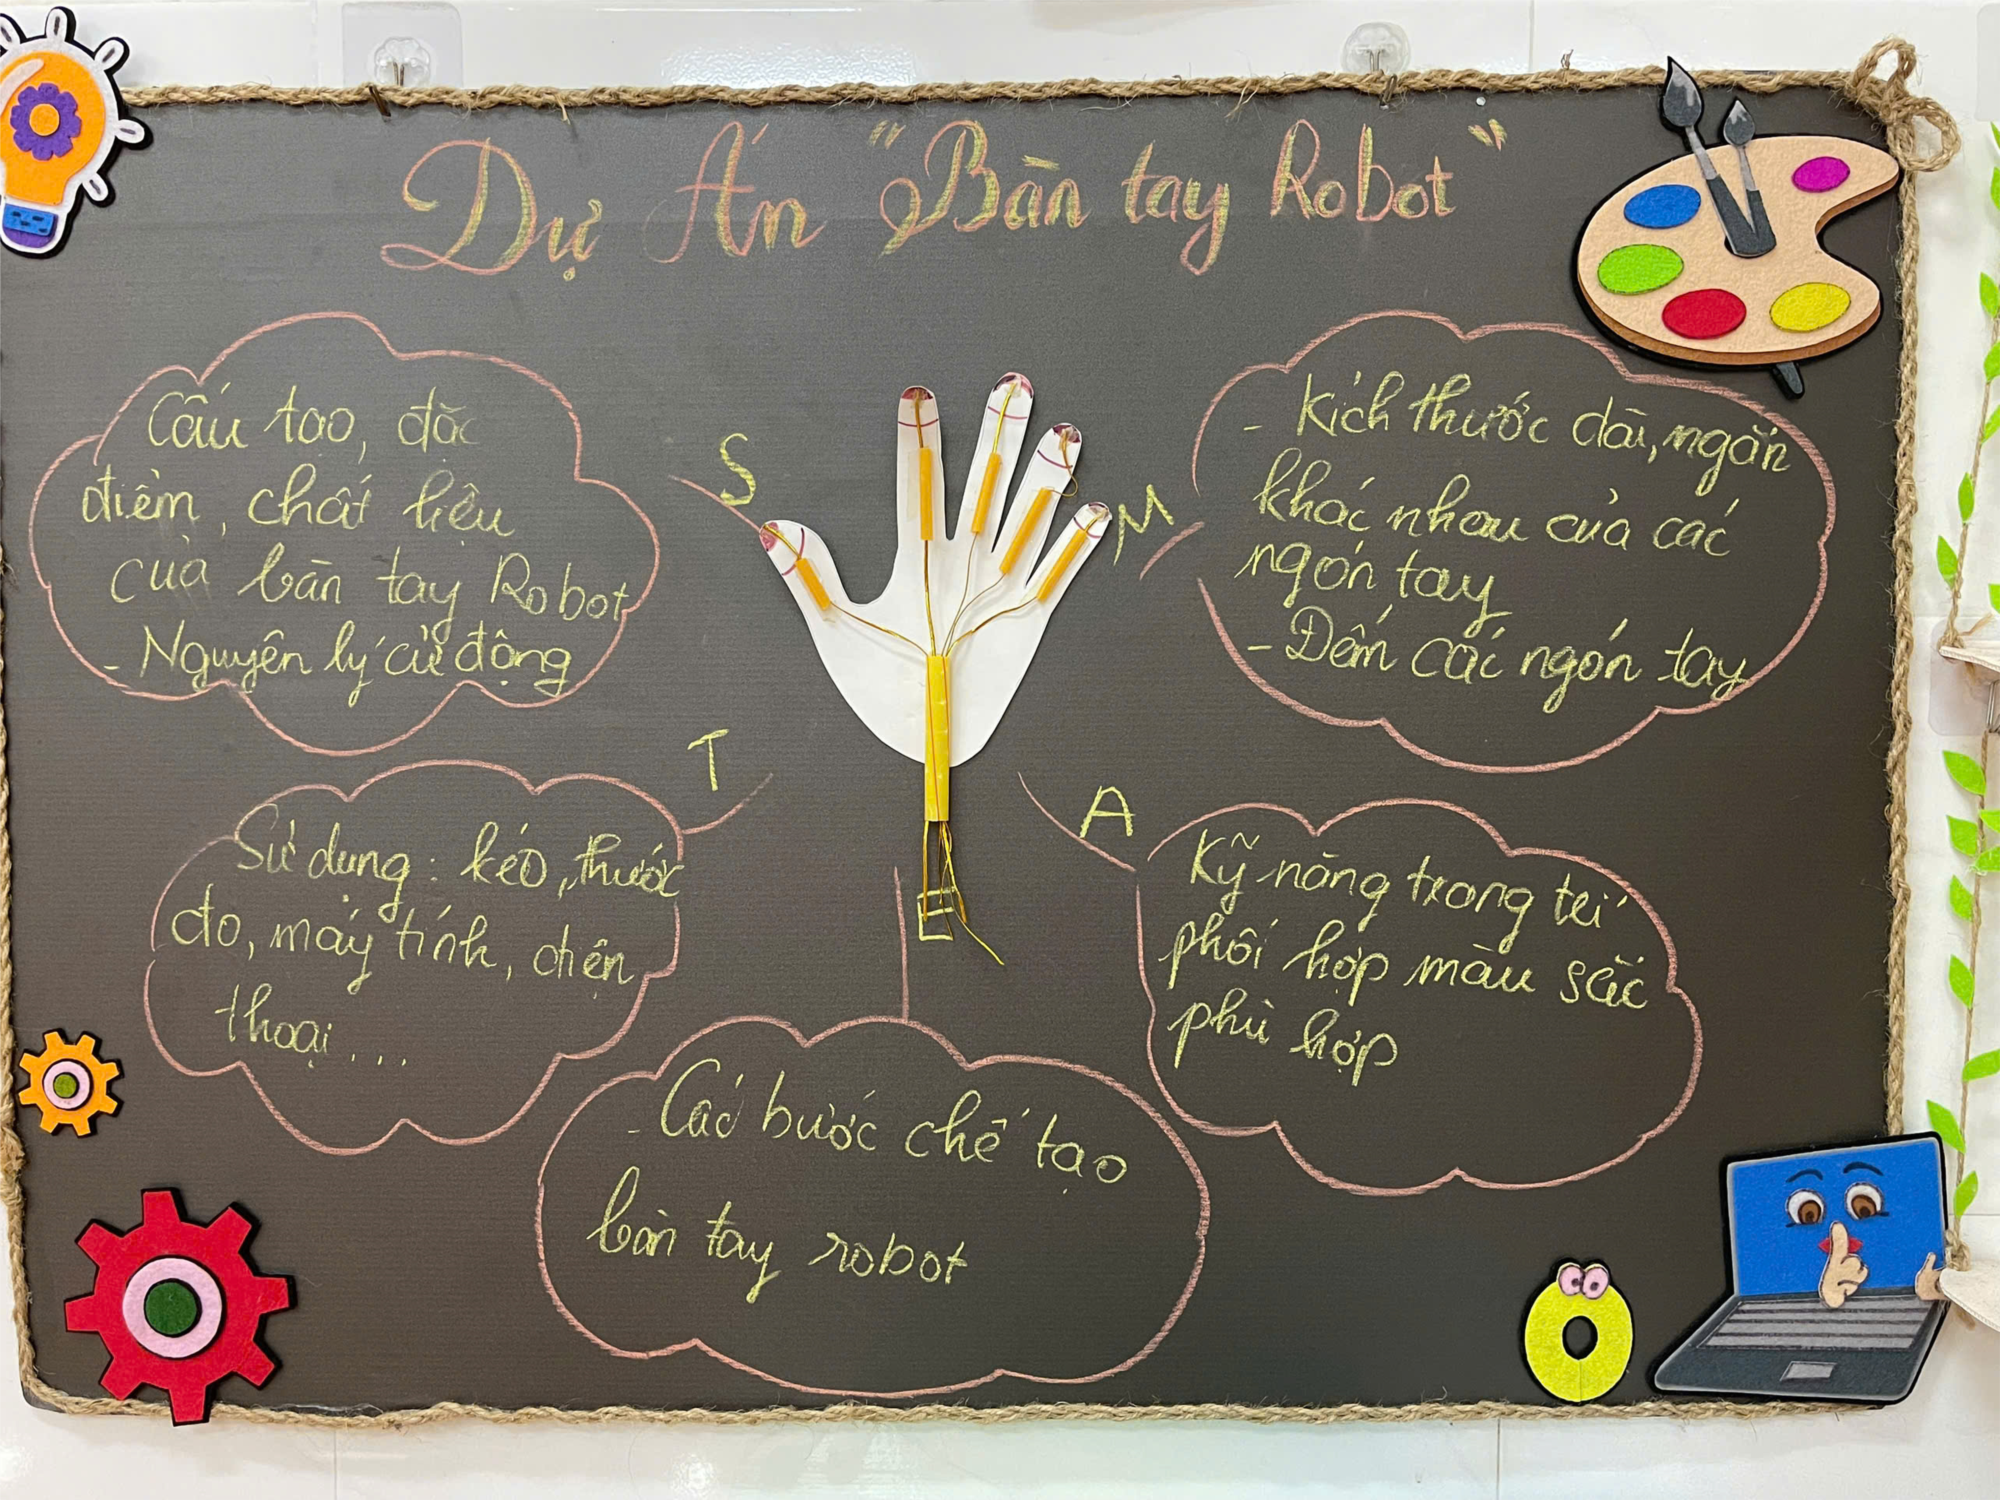 Dự Án "Bàn tay Robot"
Cấu tạo, đặc
điểm, chất liệu
của bàn tay Robot
- Nguyên lý cử động
S
T
Sử dụng: kéo, thước
đo, máy tính, điện
thoại...
E
- Các bước chế tạo
bàn tay robot
A
Kỹ năng trang trí
phối hợp màu sắc
phù hợp
M
- Kích thước dài, ngắn
khác nhau của các
ngón tay
- Đếm các ngón tay